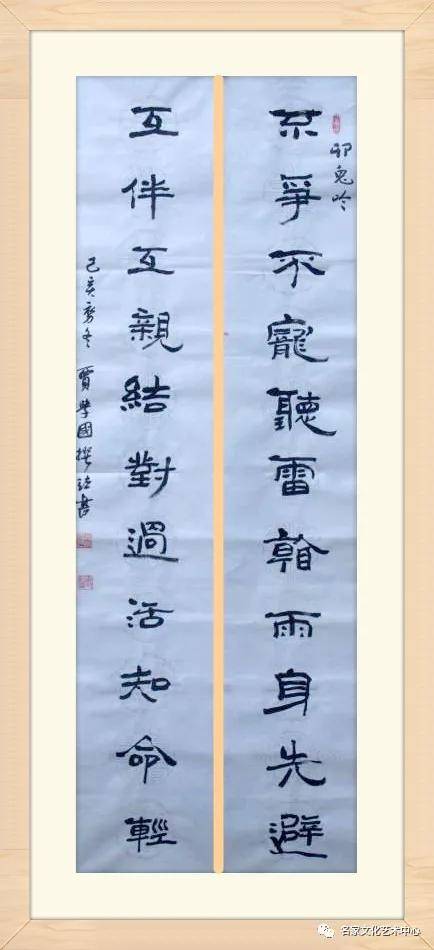 卯兔吟
不爭不寵聽雷雨身先避
互伴互親結對過活知命輕
己亥冬 賈學國撰書
名家文化艺术中心